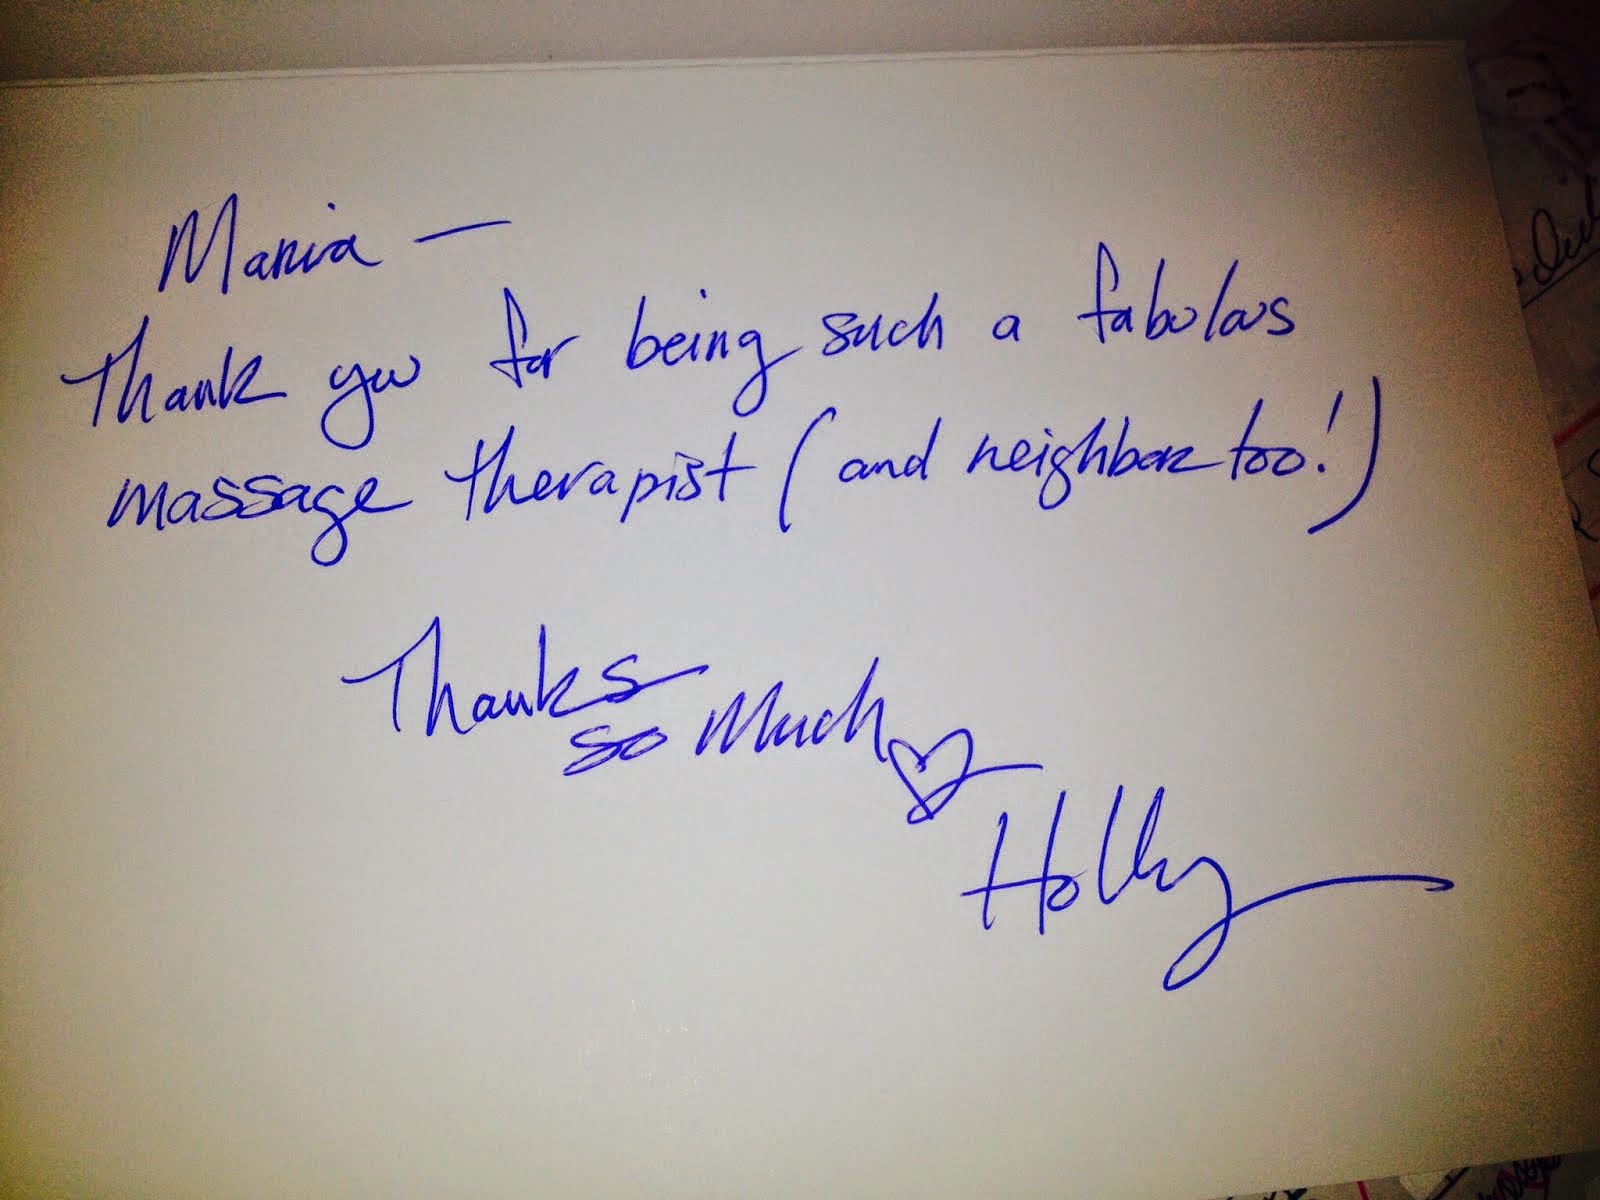 Maria —
Thank you for being such a fabulous
massage therapist (and neighbor too!)
Thanks
so much ♡
Holly